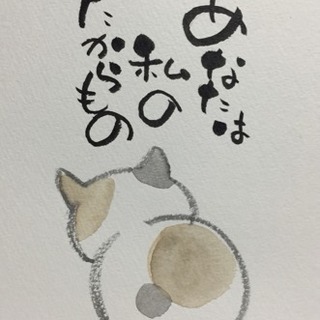 あなたは
私の
たからもの